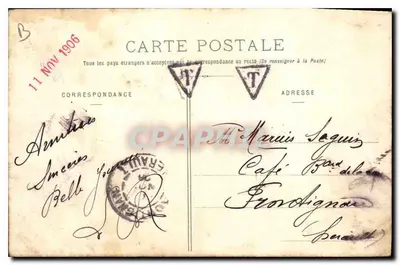 B
11 NOV 1906
CARTE POSTALE
Tous les pays étrangers n'acceptent pas la correspondance au recto (Se renseigner à la Poste)
T T
CORRESPONDANCE
ADRESSE
Amitiés
Sincères
Belle
M. Marius Seguin
Café
Frontignan
Herault
CPARAMA